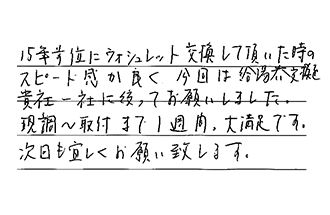 15年前位にウォシュレット交換して頂いた時の
スピード感が良く 今回は給湯器交換を
貴社一社に絞ってお願いしました。
現調〜取付まで1週間、大満足です。
次回も宜しくお願い致します。